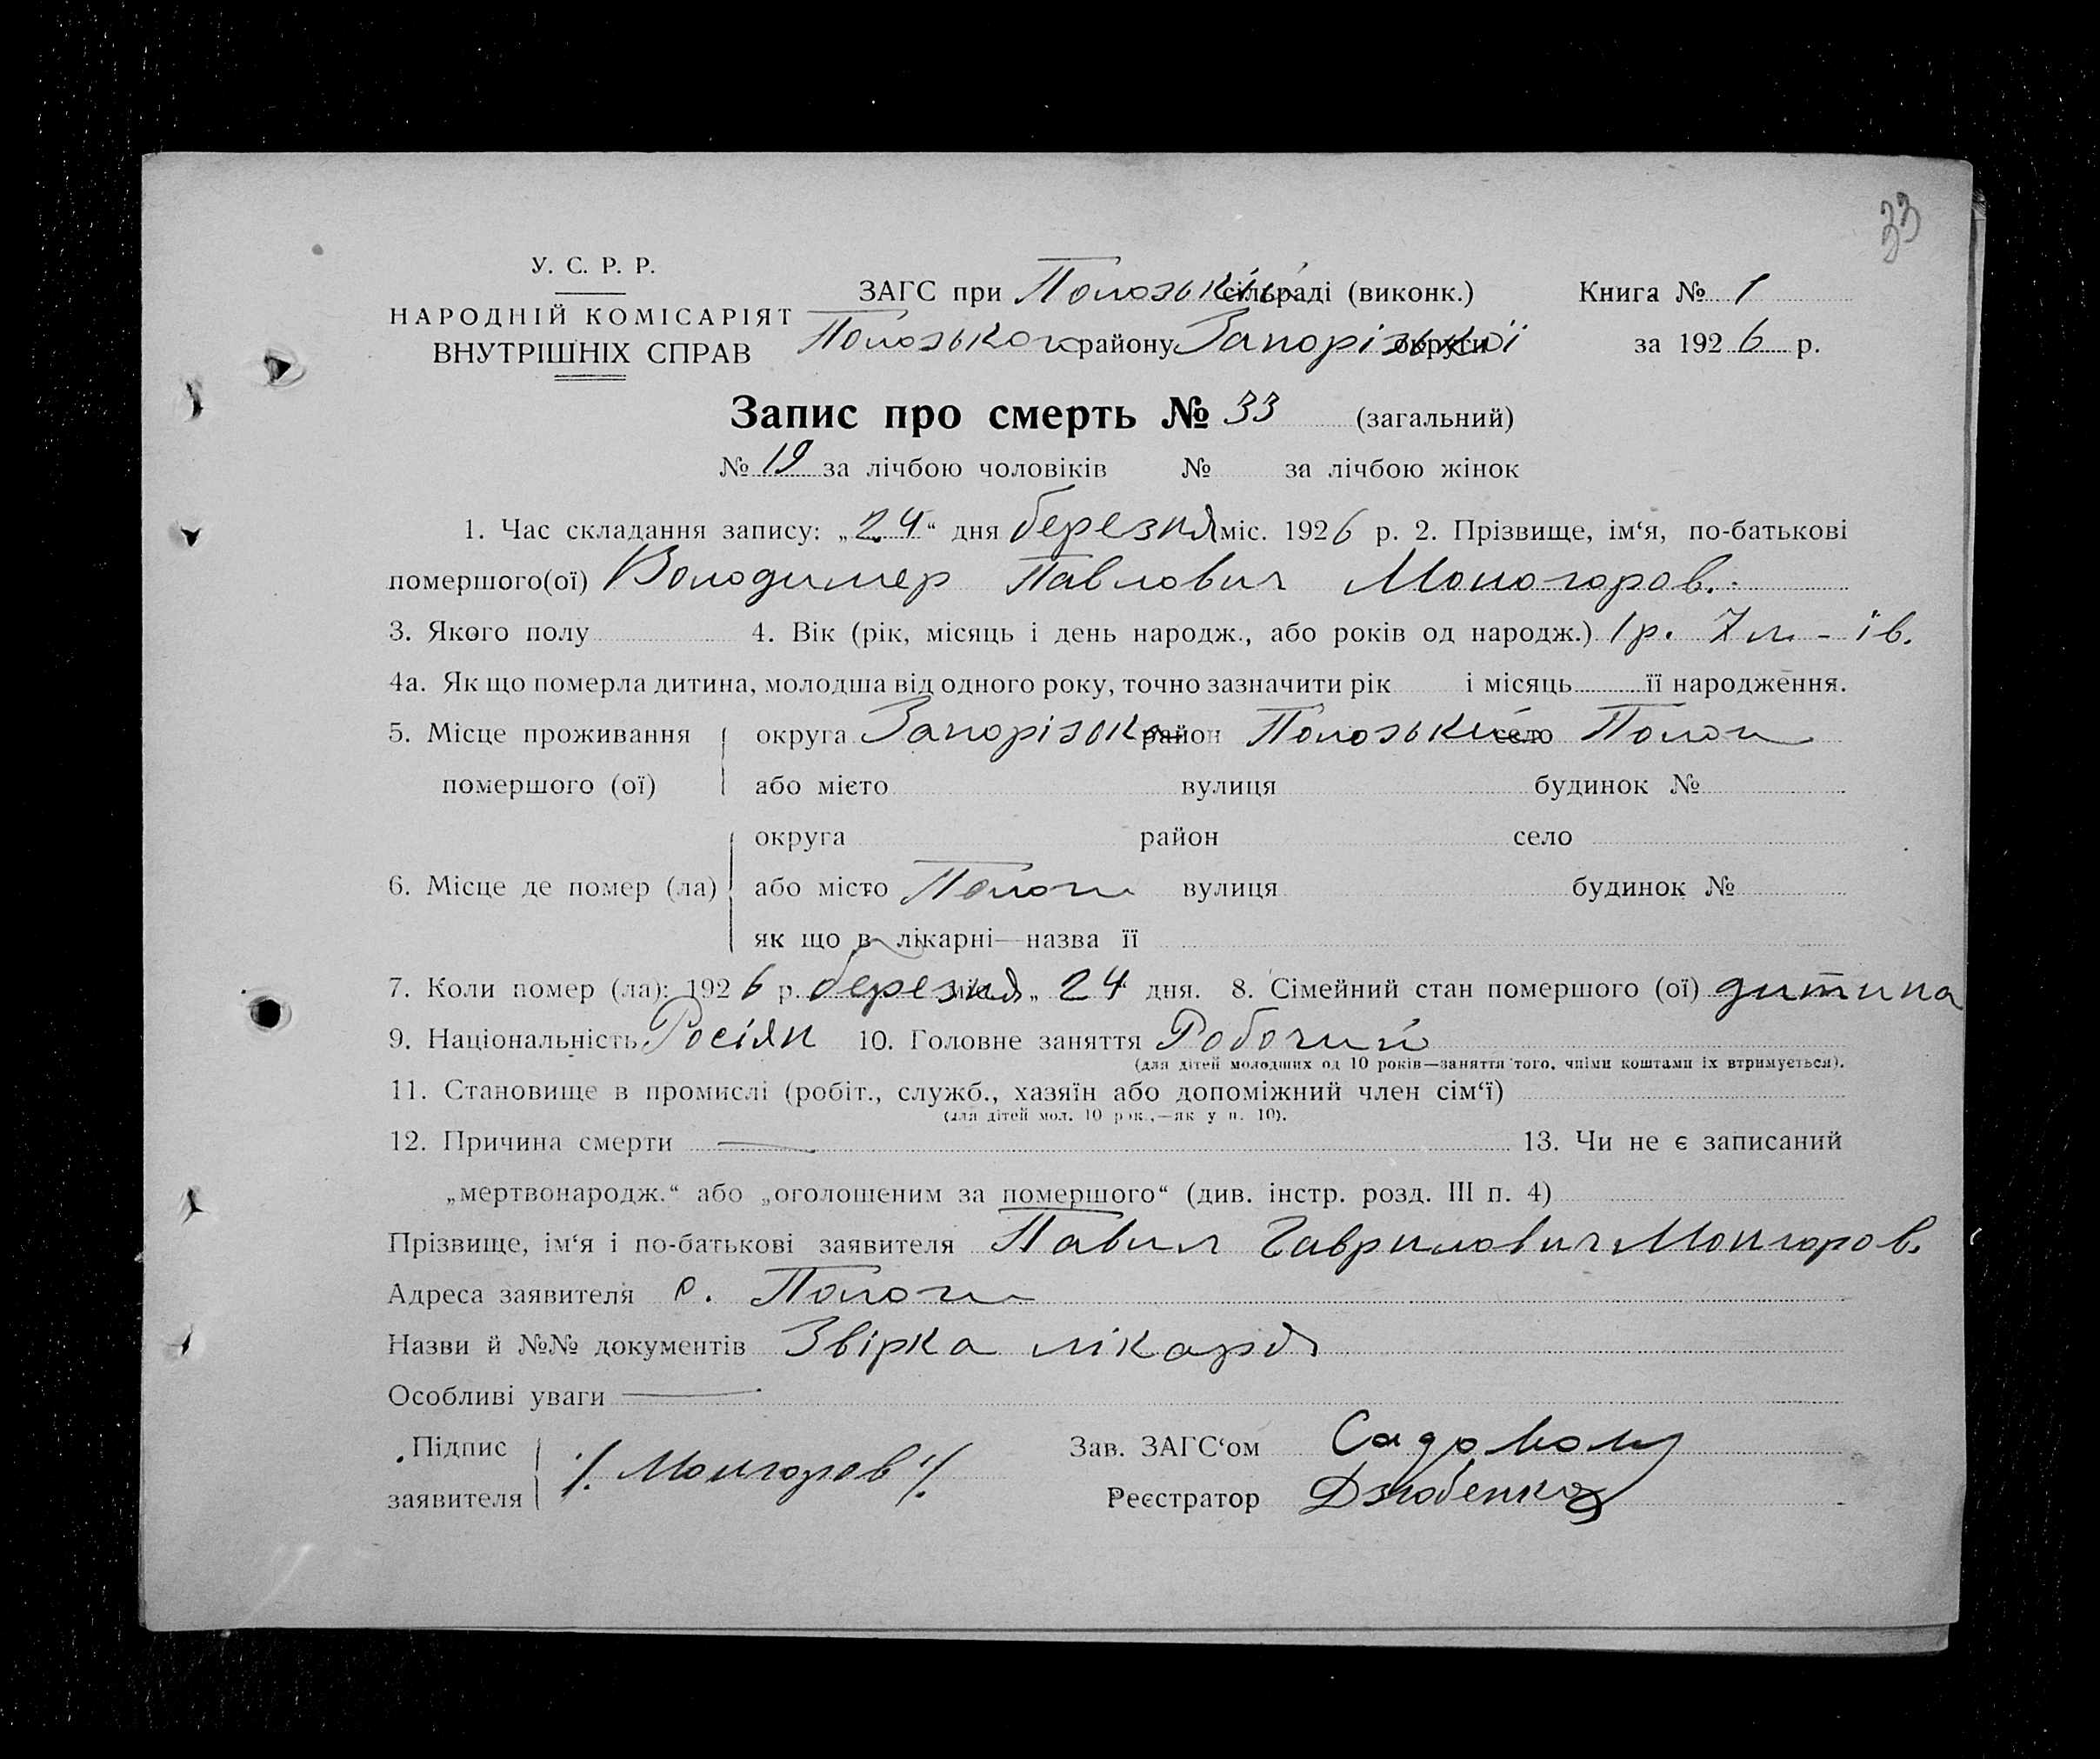 33
У. С. Р. Р.
НАРОДНІЙ КОМІСАРІЯТ
ВНУТРІШНІХ СПРАВ
ЗАГС при Пологській сільраді (виконк.)
Пологського району Запорізької округи
Книга № 1
за 1926 р.
Запис про смерть № 33 (загальний)
№ 19 за лічбою чоловіків № за лічбою жінок
1. Час складання запису: „24“ дня березня міс. 1926 р. 2. Прізвище, ім‘я, по-батькові
помершого(ої) Володимер Павлович Моногоров.
3. Якого полу 4. Вік (рік, місяць і день народж., або років од народж.) 1 р. 7 м. - ів.
4а. Як що померла дитина, молодша від одного року, точно зазначити рік і місяць її народження.
5. Місце проживання округа Запорізька район Пологський село Пологи
помершого (ої) або місто вулиця будинок №
округа район село
6. Місце де помер (ла) або місто Пологи вулиця будинок №
як що в лікарні—назва її
7. Коли помер (ла): 1926 р. березня „ 24 дня. 8. Сімейний стан помершого (ої) дитина
9. Національність Росіян 10. Головне заняття Робочий
(для дітей молодших од 10 років—заняття того, чиїми коштами їх втримується).
11. Становище в промислі (робіт., служб., хазяїн або допоміжний член сім‘ї)
(для дітей мол. 10 рок.,—як у п. 10).
12. Причина смерти 13. Чи не є записаний
„мертвонародж.“ або „оголошеним за помершого“ (див. інстр. розд. III п. 4)
Прізвище, ім‘я і по-батькові заявителя Павил Гаврилович Моногоров.
Адреса заявителя с. Пологи
Назви й №№ документів Звірка лікаря
Особливі уваги
Підпис
заявителя /. Моногоров /.
Зав. ЗАГС‘ом
Реєстратор Дзюбенко